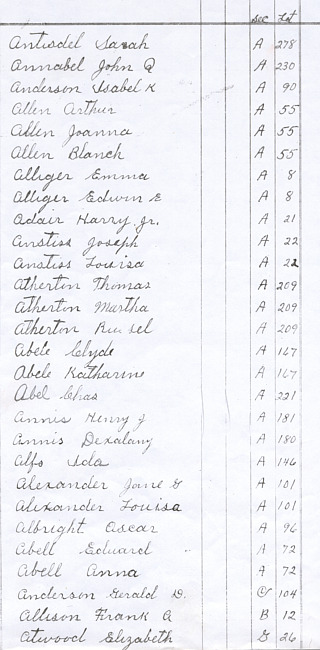 Sec Lot
Antisdel Sarah A 278
Annabel John Q A 230
Anderson Isabel K A 90
Allen Arthur A 55
Allen Joanna A 55
Allen Blanch A 55
Alliger Emma A 8
Alliger Edwin E A 8
Adair Harry Jr. A 21
Anstiss Joseph A 22
Anstiss Louisa A 22
Atherton Thomas A 209
Atherton Martha A 209
Atherton A 209
Abele Clyde A 167
Abele Katharine A 167
Abel Chas A 221
Annis Henry J A 181
Annis A 180
Alfs Ida A 146
Alexander Jane G A 101
Alexander Louisa A 101
Albright Oscar A 96
Abell Edward A 72
Abell Anna A 72
Anderson Gerald D. 104
Allison Frank A B 12
Atwood Elizabeth G 26